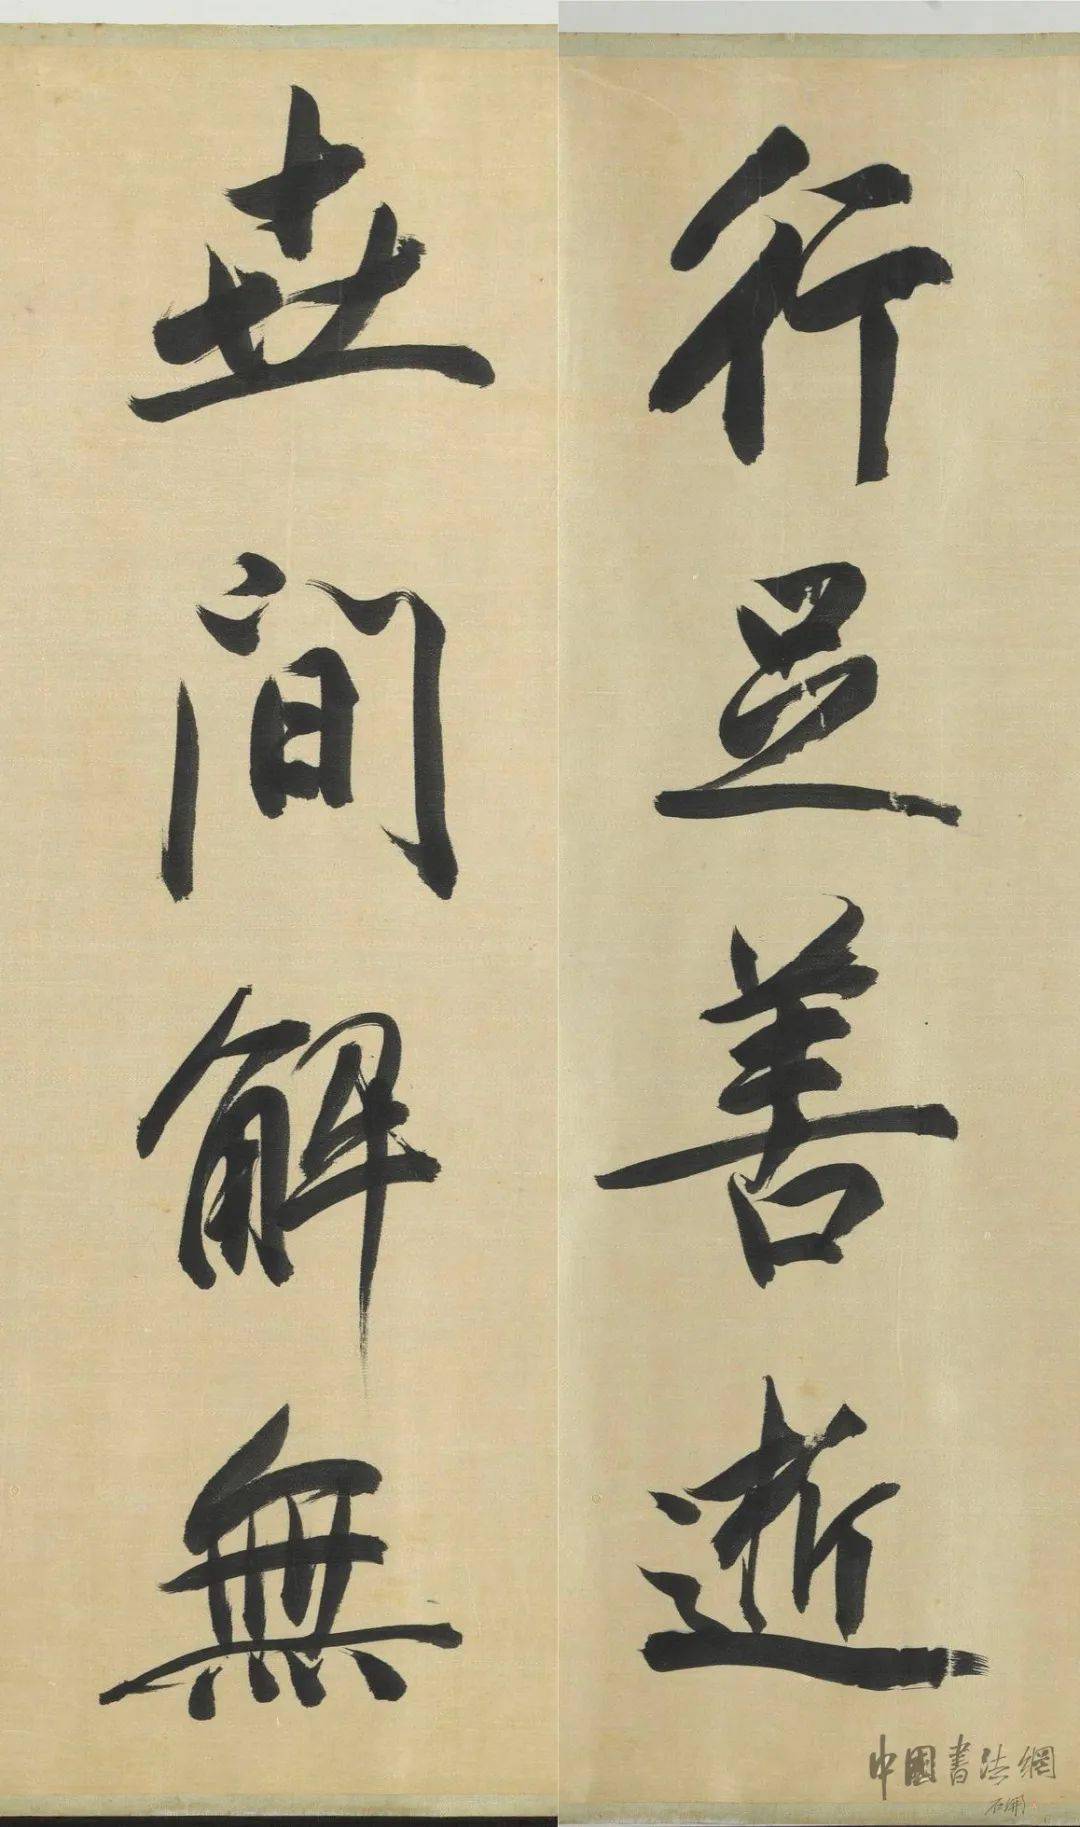 行足善逝
世間解無
中國書法網
石開